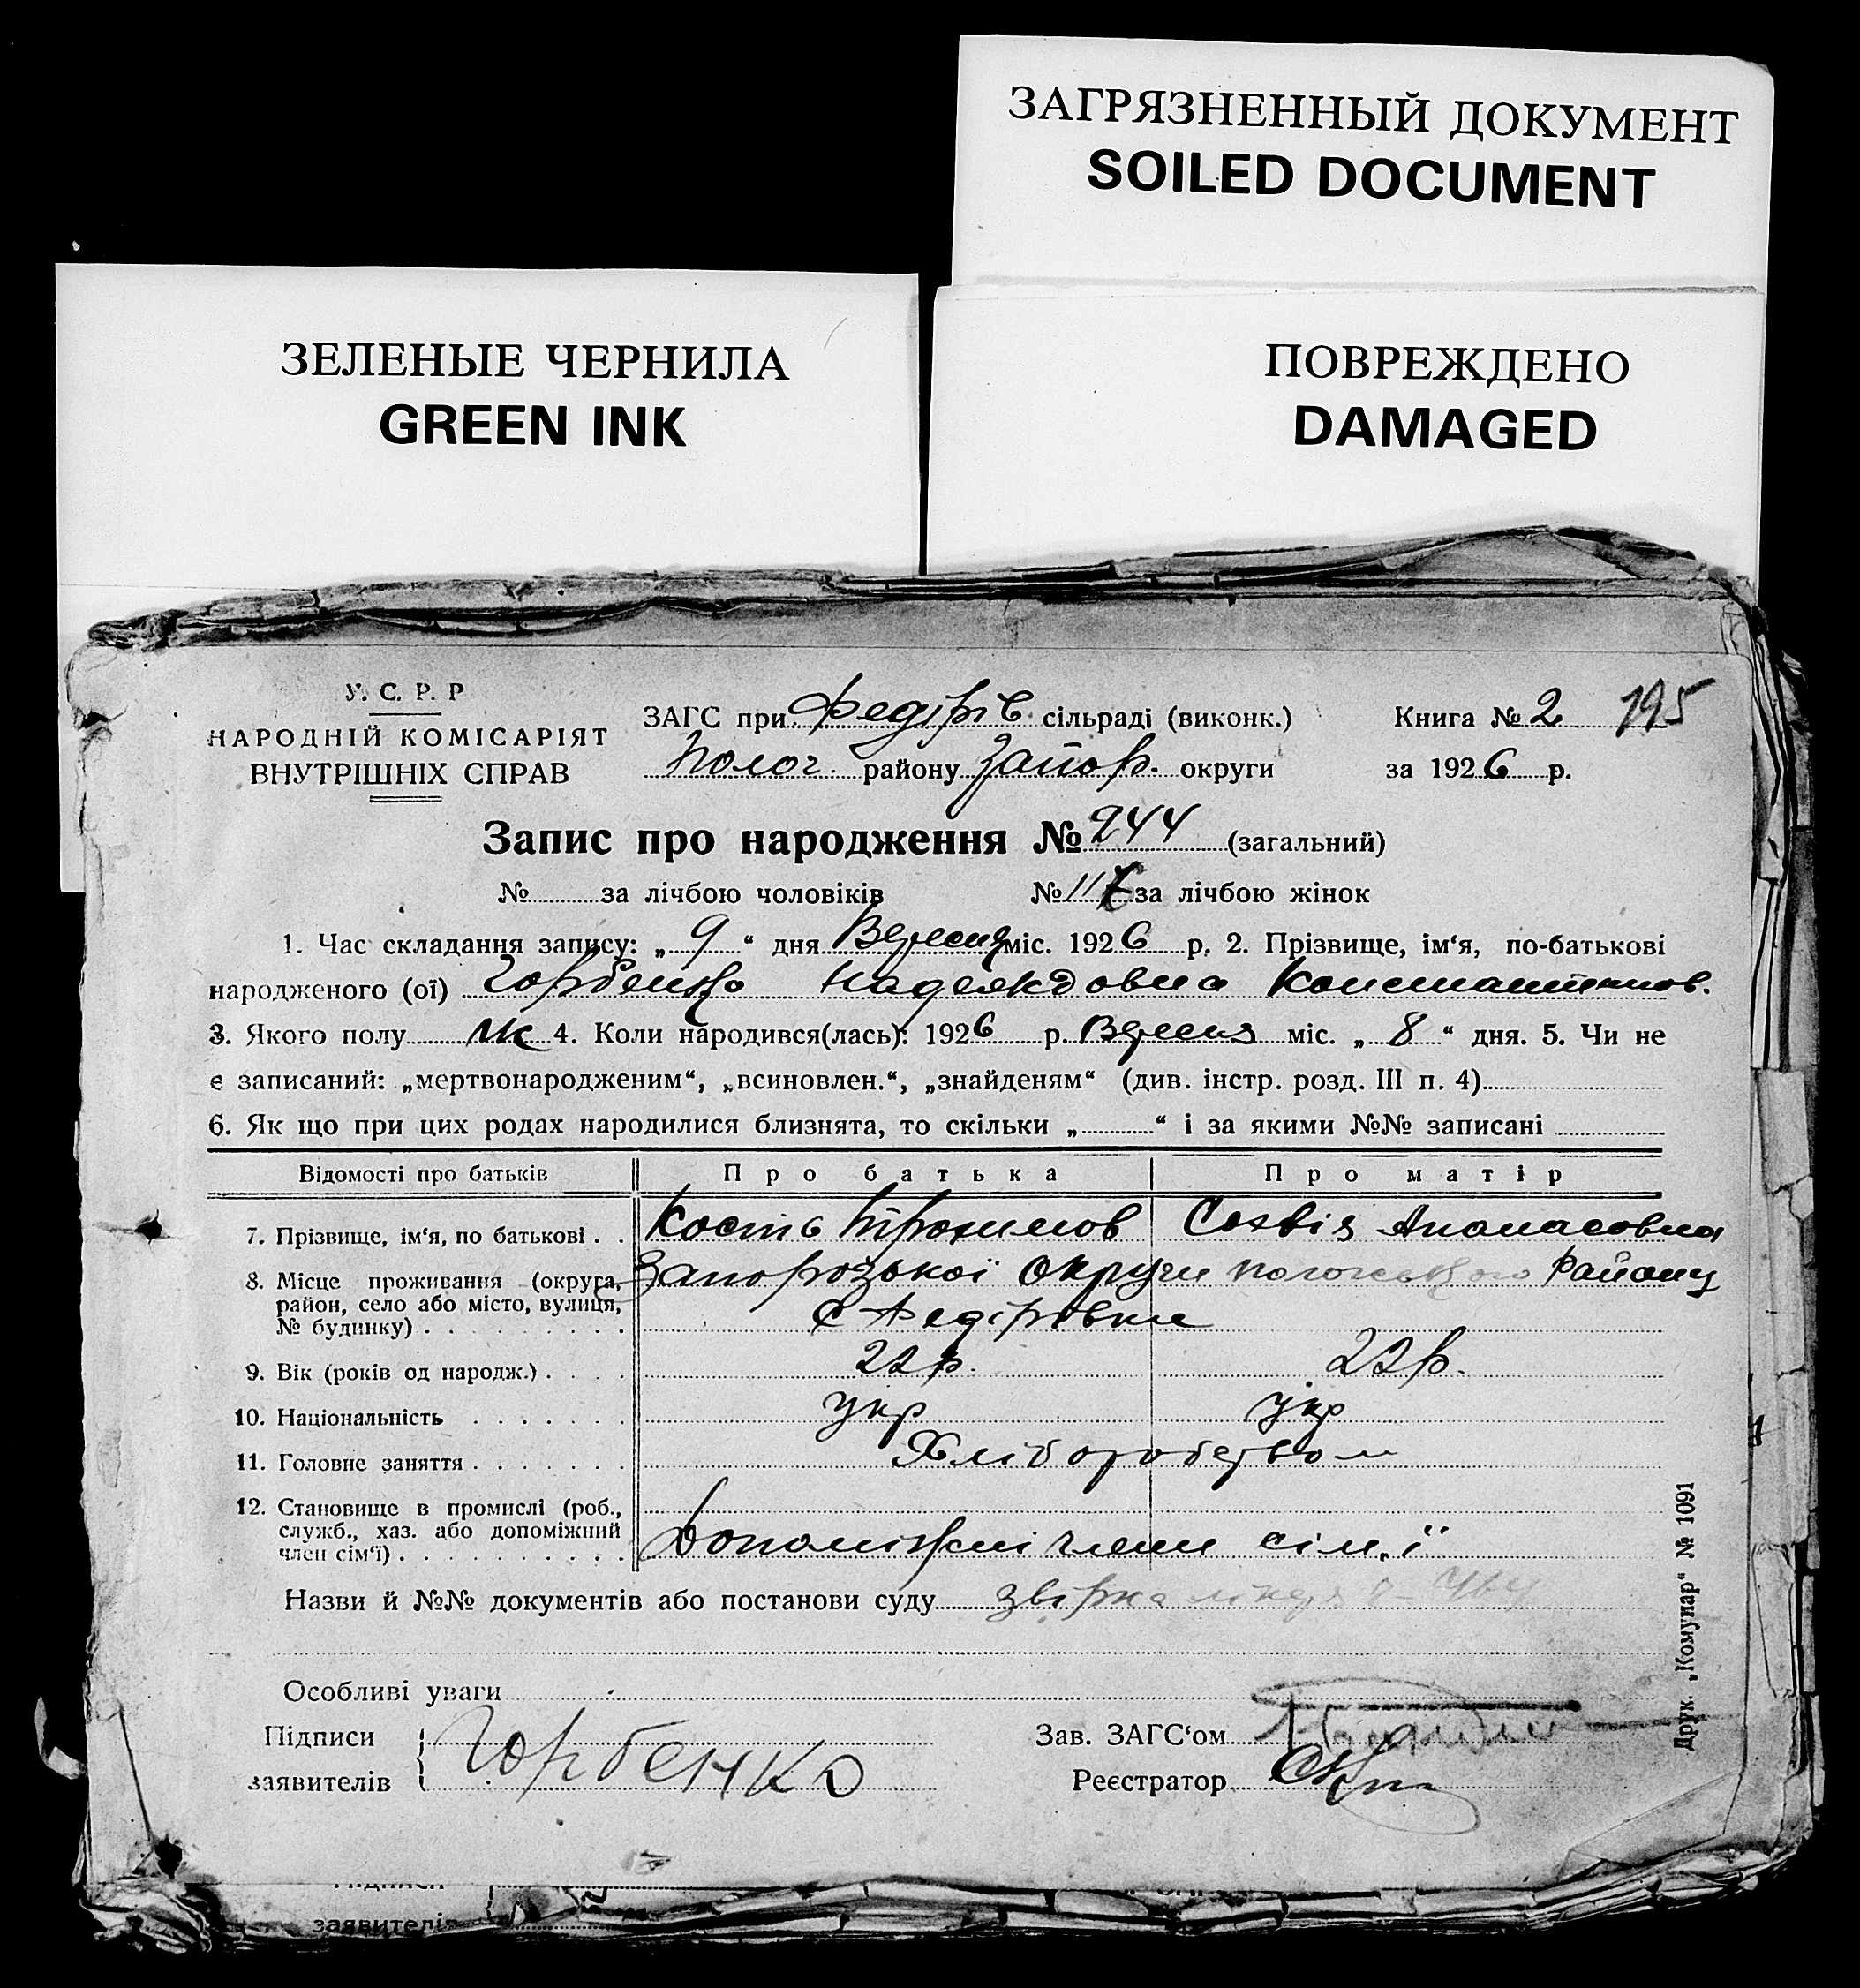 ЗАГРЯЗНЕННЫЙ ДОКУМЕНТ
SOILED DOCUMENT
ЗЕЛЕНЫЕ ЧЕРНИЛА
GREEN INK
ПОВРЕЖДЕНО
DAMAGED
У. С. Р. Р
НАРОДНІЙ КОМІСАРІЯТ
ВНУТРІШНІХ СПРАВ
ЗАГС при Федірів сільраді (виконк.)
Полог. району Запор. округи
Книга № 2 195
за 1926 р.
Запис про народження № 244 (загальний)
№ за лічбою чоловіків № 117 за лічбою жінок
1. Час складання запису: „ 9 “ дня Вересня міс. 1926 р, 2. Прізвище, ім‘я, по-батькові
народженого (ої) Горбенко Надеждовна Константинов.
3. Якого полу жк 4. Коли народився(лась): 1926 р. Вересня міс. „ 8 “ дня. 5. Чи не
є записаний: „мертвонародженим“, „всиновлен.“, „знайденям“ (див. інстр. розд. III п. 4)
6. Як що при цих родах народилися близнята, то скільки „ “ і за якими №№ записані
Відомості про батьків Про батька Про матір
7. Прізвище, ім‘я, по батькові . . Кость Трохимов Софія Апанасовна
8. Місце проживання (округа, Запорозької Округи Пологського Району
район, село або місто, вулиця, с Федірівки
№ будинку) . . . . . . . . .
9. Вік (років од народж.) . . . . 22 р. 22 р.
10. Національність . . . . . . . укр укр
11. Головне заняття . . . . . . . Хліборобство
12. Становище в промислі (роб.,
служб., хаз. або допоміжний Допоміжні члени сім,ї
член сім‘ї) . . . . . . . . . .
Назви й №№ документів або постанови суду звірка
Особливі уваги
Підписи
заявителів Горбенко
Зав. ЗАГС‘ом
Реєстратор
Друк. „Комунар“ № 1091
Підписи
заявителів